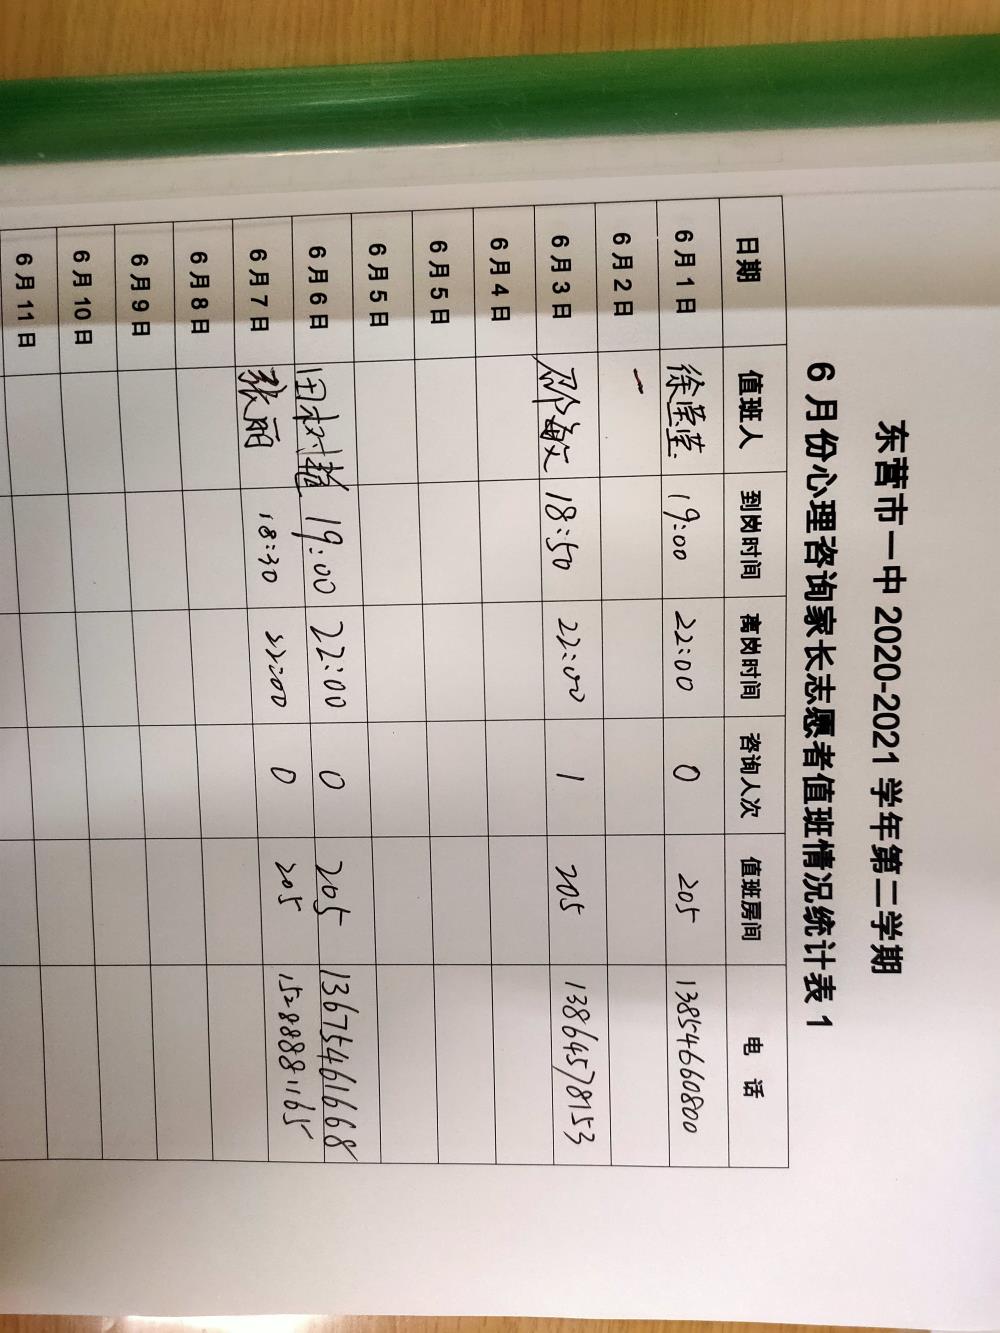 东营市一中 2020-2021 学年第二学期
6 月份心理咨询家长志愿者值班情况统计表 1
日期 值班人 到岗时间 离岗时间 咨询人次 值班房间 电 话
6 月 1 日 徐莹莹 19:00 22:00 0 205 13854660800
6 月 2 日
6 月 3 日 邵敏 18:50 22:00 1 205 13864578153
6 月 4 日
6 月 5 日
6 月 5 日
6 月 6 日 田树 19:00 22:00 0 205 13675461668
6 月 7 日 张丽 18:30 22:00 0 205 15288881165
6 月 8 日
6 月 9 日
6 月 10 日
6 月 11 日